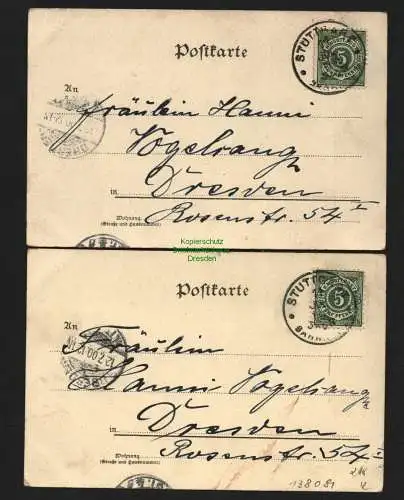 Postkarte
STUTTGART
5
An
Fräulein Hanni
Vogelsang
in Dresden
Wohnung.
(Straße und Hausnummer)
Rosenstr. 54 I
Kopierschutz
Dresden
Postkarte
STUTT
5
BAHN
An
Fräulein
12.7.00
Hanni Vogelsang
in Dresden
Wohnung.
(Straße und Hausnummer)
Rosenstr. 54 I
138081